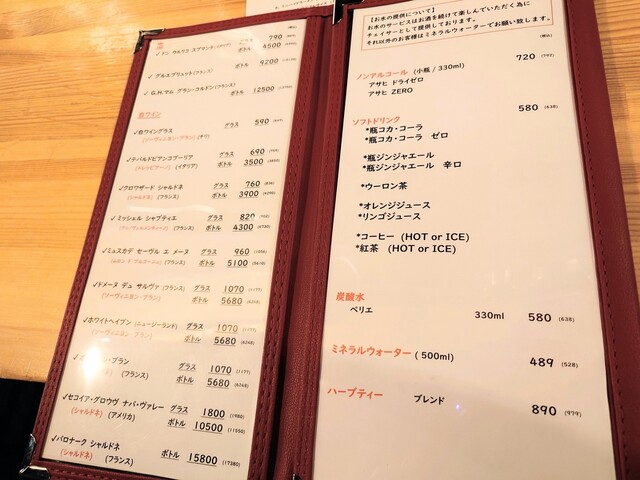 790
✓ドン ウルリク スプマンテ(イタリア) ボトル 4500
✓グルエブリュット(フランス) ボトル 9200
✓G.H.マム グラン・コルドン(フランス) ボトル 12500
白ワイン
✓白ワイングラス グラス 590
(ソーヴィニヨン・ブラン)(チリ)
✓テバルドビアンコプーリア グラス 690
(トレッビアーノ)(イタリア) ボトル 3500
✓クロワザード シャルドネ グラス 760 (836)
(シャルドネ) (フランス) ボトル 3900 (4290)
✓ミッシェル シャプティエ グラス 820 (902)
(フランス) ボトル 4300 (4730)
✓ミュスカデ セーヴル エ メーヌ グラス 960
(フランス) ボトル 5100
✓ドメーヌ デュ サルヴァ (フランス) グラス 1070 (1177)
(ソーヴィニヨン・ブラン) ボトル 5680 (6248)
✓ホワイトヘイブン (ニュージーランド) グラス 1070 (1177)
(ソーヴィニヨン・ブラン) ボトル 5680 (6248)
ブラン グラス 1070 (1177)
(フランス) ボトル 5680 (6248)
✓セコイア・グロウヴ ナパ・ヴァレー グラス 1800 (1980)
(シャルドネ) (アメリカ) ボトル 10500 (11550)
✓バロナーク シャルドネ
(シャルドネ) (フランス) ボトル 15800 (17380)
【お水の提供について】
お水のサービスはお酒を続けて楽しんでいただく為に
チェイサーとして提供しております。
それ以外のお客様はミネラルウォーターでお願い致します。
(税込)
ノンアルコール (小瓶 / 330ml) 720 (792)
アサヒ ドライゼロ
アサヒ ZERO
580 (638)
ソフトドリンク
*瓶コカ・コーラ
*瓶コカ・コーラ ゼロ
*瓶ジンジャエール
*瓶ジンジャエール 辛口
*ウーロン茶
*オレンジジュース
*リンゴジュース
*コーヒー (HOT or ICE)
*紅茶 (HOT or ICE)
炭酸水
ペリエ 330ml 580 (638)
ミネラルウォーター ( 500ml) 489 (528)
ハーブティー ブレンド 890 (979)